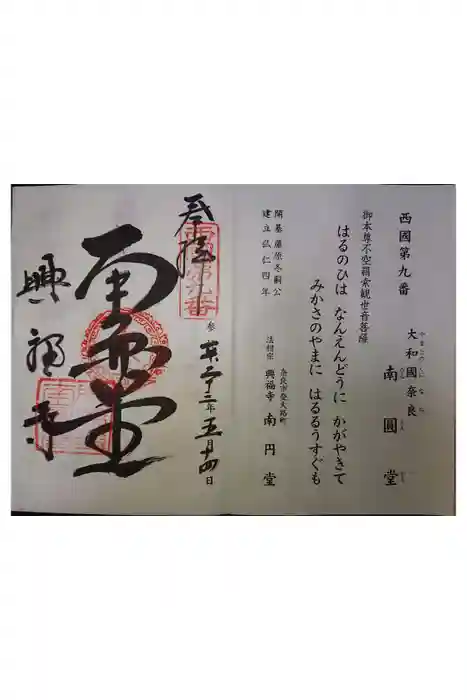 西國第九番
大和國奈良
南圓堂
御本尊不空羂索観世音菩薩
はるのひは なんえんどうに かがやきて
みかさのやまに はるるうすぐも
開基 藤原冬嗣公
建立 弘仁四年
奈良市登大路町
法相宗 興福寺 南円堂
奉拝
西国第九番
平成二十三年五月十四日
南圓堂
興福寺